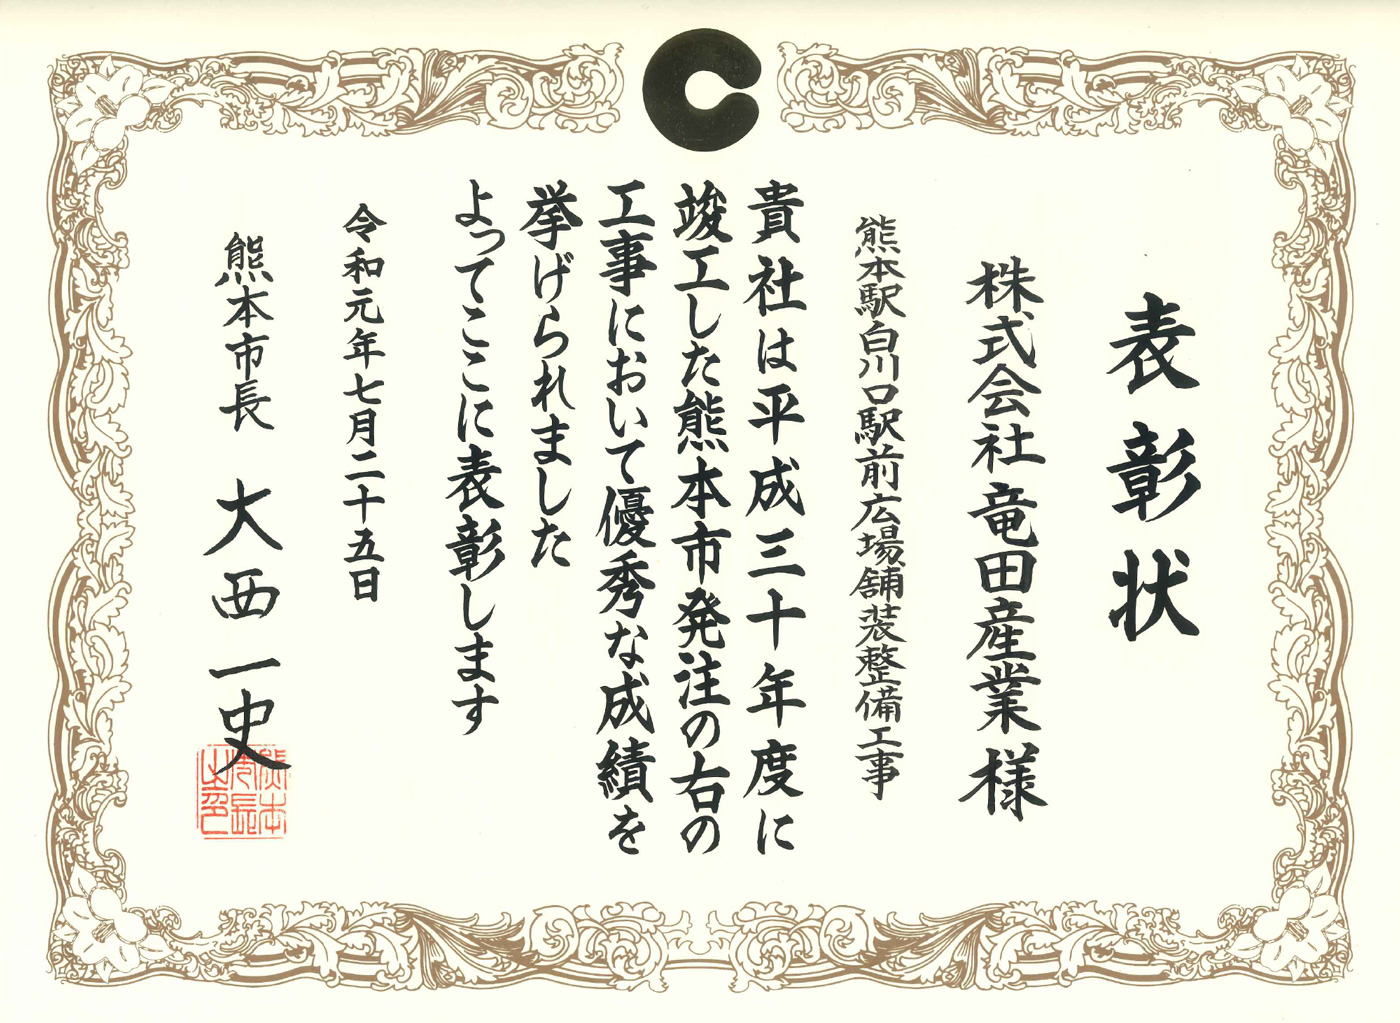 表彰状
株式会社竜田産業様
熊本駅白川口駅前広場舗装整備工事
貴社は平成三十年度に
竣工した熊本市発注の右の
工事において優秀な成績を
挙げられました
よってここに表彰します
令和元年七月二十五日
熊本市長 大西一史
熊本
市長
之印